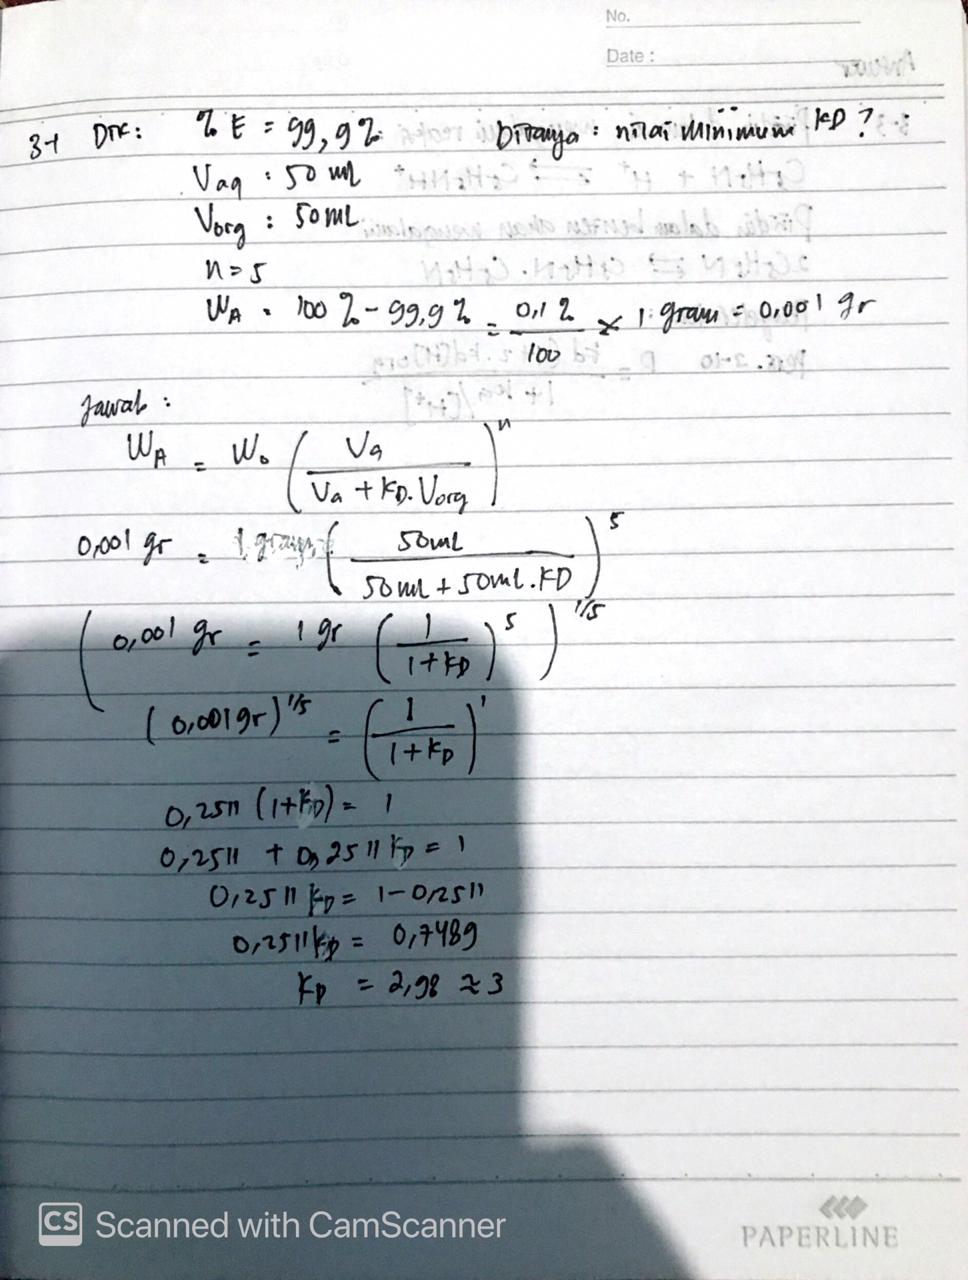 No.
Date :
3-1 Dik: % E = 99,9% Ditanya : nilai minimum KD ?
Vaq : 50 ml
Vorg : 50 mL
n = 5
WA = 100 % - 99,9 % = 0,1 % / 100 × 1 gram = 0,001 gr
Jawab :
WA = Wo ( Va / Va + KD. Vorg )^n
0,001 gr = 1 gram ( 50mL / 50ml + 50ml . KD )^5
( 0,001 gr = 1 gr ( 1 / 1 + KD )^5 )^1/5
( 0,001gr )^1/5 = ( 1 / 1 + KD )^1
0,2511 (1+KD) = 1
0,2511 + 0,2511 KD = 1
0,2511 KD = 1 - 0,2511
0,2511 KD = 0,7489
KD = 2,98 ≈ 3
CS Scanned with CamScanner
PAPERLINE